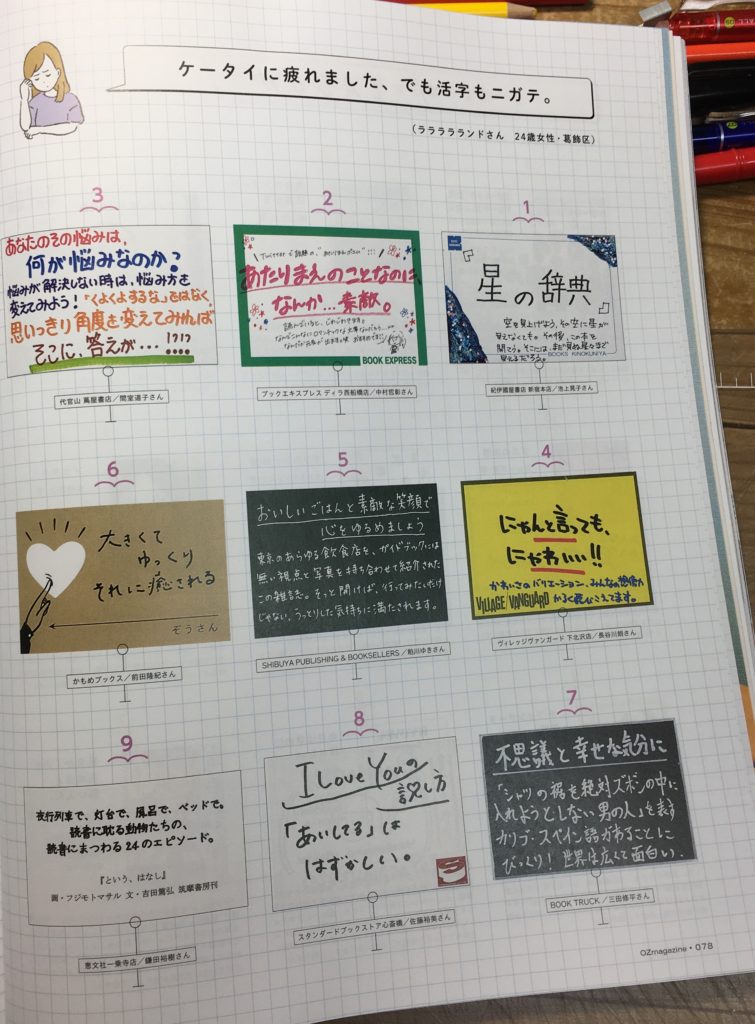 ケータイに疲れました、でも活字もニガテ。
（ララララランドさん 24歳女性・葛飾区）
1
星の辞典
空を見上げよう。その空に星が
見えなくとも。その後、この本を
開こう。そこには、まだ見ぬ星々まで
見えるだろう。
BOOKS KINOKUNIYA
紀伊國屋書店 新宿本店／池上晃子さん
2
あたりまえのことなのに、
なんか…素敵。
BOOK EXPRESS
ブックエキスプレス ディラ西船橋店／中村哲彰さん
3
あなたのその悩みは、
何が悩みなのか？
悩みが解決しない時は、悩み方を
変えてみよう！「くよくよするな」ではなく、
思いっきり角度を変えてみれば
そこに、答えが…!?!?
代官山 蔦屋書店／間室道子さん
4
にゃんと言っても、
にゃわいい!!
かわいさのバリエーション、みんなの想像力
VILLAGE/VANGUARD かるく飛びこえてます。
ヴィレッジヴァンガード 下北沢店／長谷川朗さん
5
おいしいごはんと素敵な笑顔で
心をゆるめましょう
東京のあらゆる飲食店を、ガイドブックには
無い視点と写真を持ち合わせて紹介された
この雑誌。そっと開けば、行ってみたいだけ
じゃない、うっとりした気持ちに満たされます。
SHIBUYA PUBLISHING & BOOKSELLERS／粕川ゆきさん
6
大きくて
ゆっくり
それに癒される
ぞうさん
かもめブックス／前田隆紀さん
7
不思議と幸せな気分に
「シャツの裾を絶対ズボンの中に
入れようとしない男の人」を表す
カリブ・スペイン語があることに
びっくり！世界は広くて面白い。
BOOK TRUCK／三田修平さん
8
I Love Youの
訳し方
「あいしてる」は
はずかしい。
スタンダードブックストア心斎橋／佐藤裕美さん
9
夜行列車で、灯台で、風呂で、ベッドで。
読書に耽る動物たちの、
読書にまつわる24のエピソード。
『という、はなし』
画・フジモトマサル 文・吉田篤弘 筑摩書房刊
恵文社一乗寺店／鎌田裕樹さん
OZmagazine・078